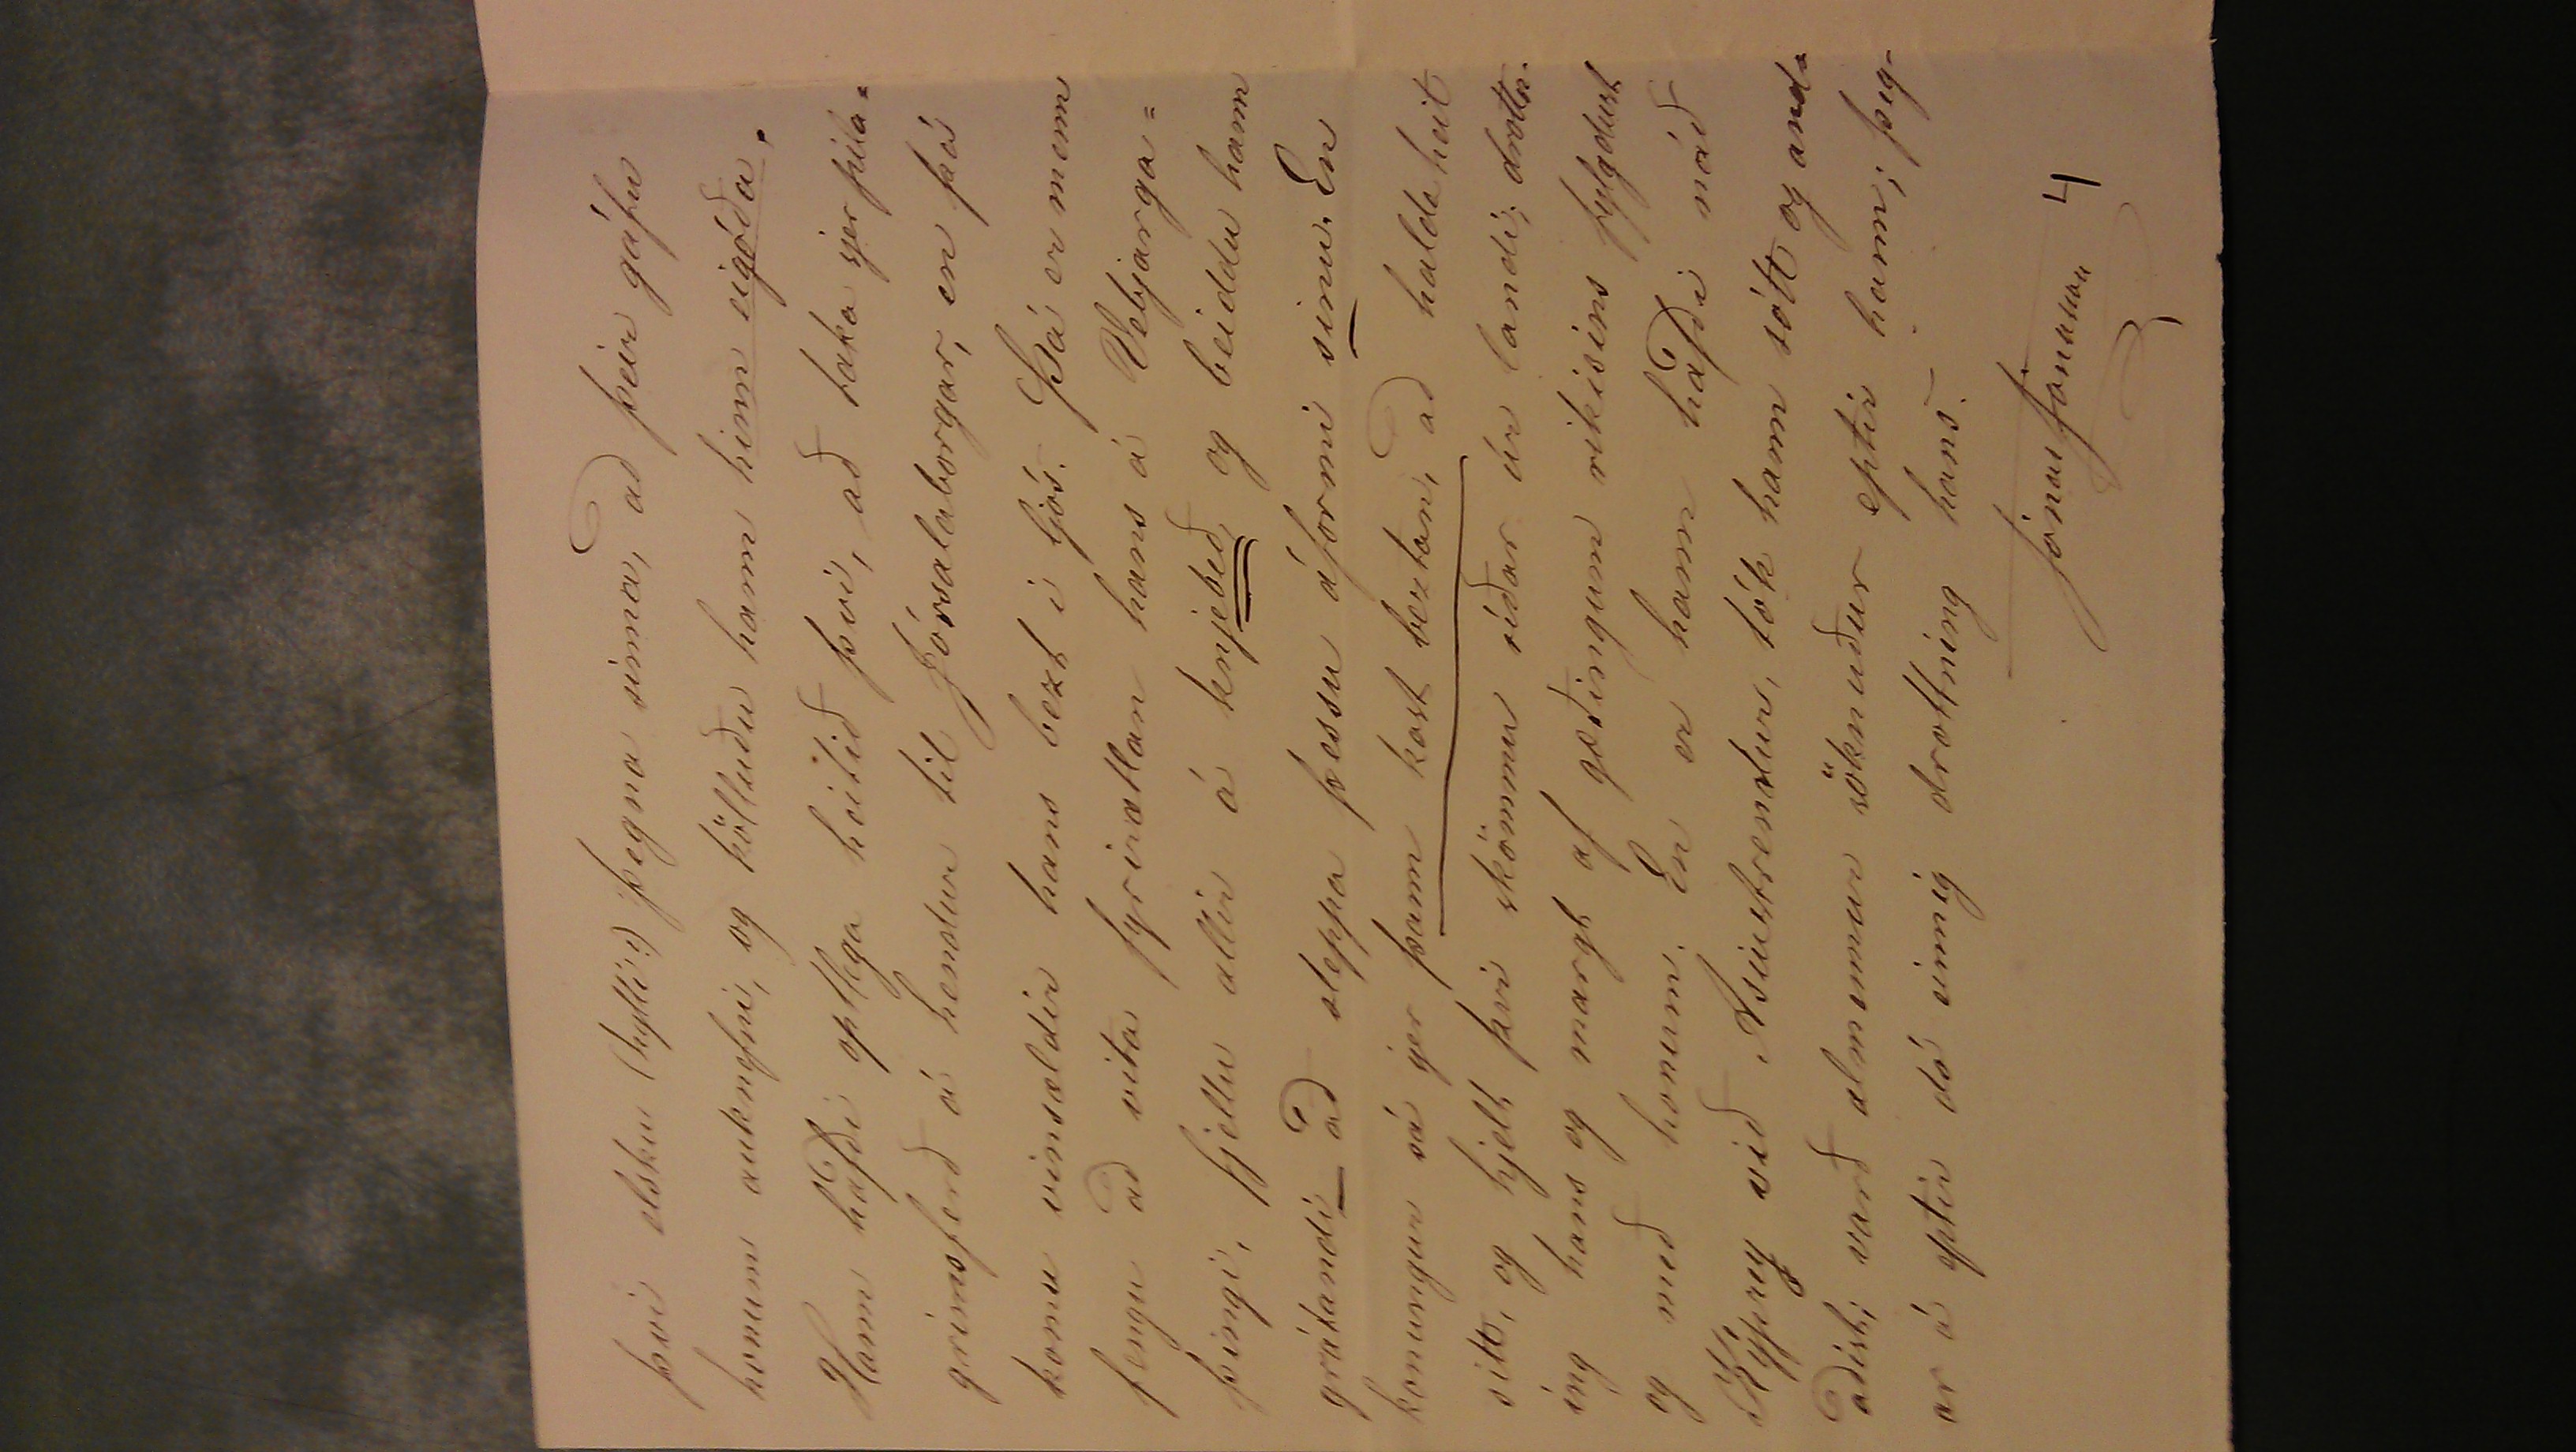 því elsku (hylli:) þegna sinna, að þeir gáfu
honum auknefni, og kölluðu hann hinn eigóða.
Hann hafði optlega heitið því, að taka sjer píla=
grímsferð á hendur til Jórsalaborgar, en þá
komu vinsældir hans bezt í ljós. Þá er menn
fengu að vita fyrirætlan hans á Vebjarga=
þingi, fjellu allir á knjebeð, og beiddu hann
grátandi að sleppa þessu áformi sinu. En
konungur sá sjer þann kost beztan, að halda heit
sitt, og hjelt því skömmu síðar úr landi; drottn-
ing hans og margt af gæðingum ríkisins fylgdust
og með honum. En er hann hafði náð
Kýprey við Asíustrendur, tók hann sótt og and=
aðist; varð almennur söknuður eptir hann; þeg-
ar á eptir dó einnig drottning hans.
Jónas Jónasson 4